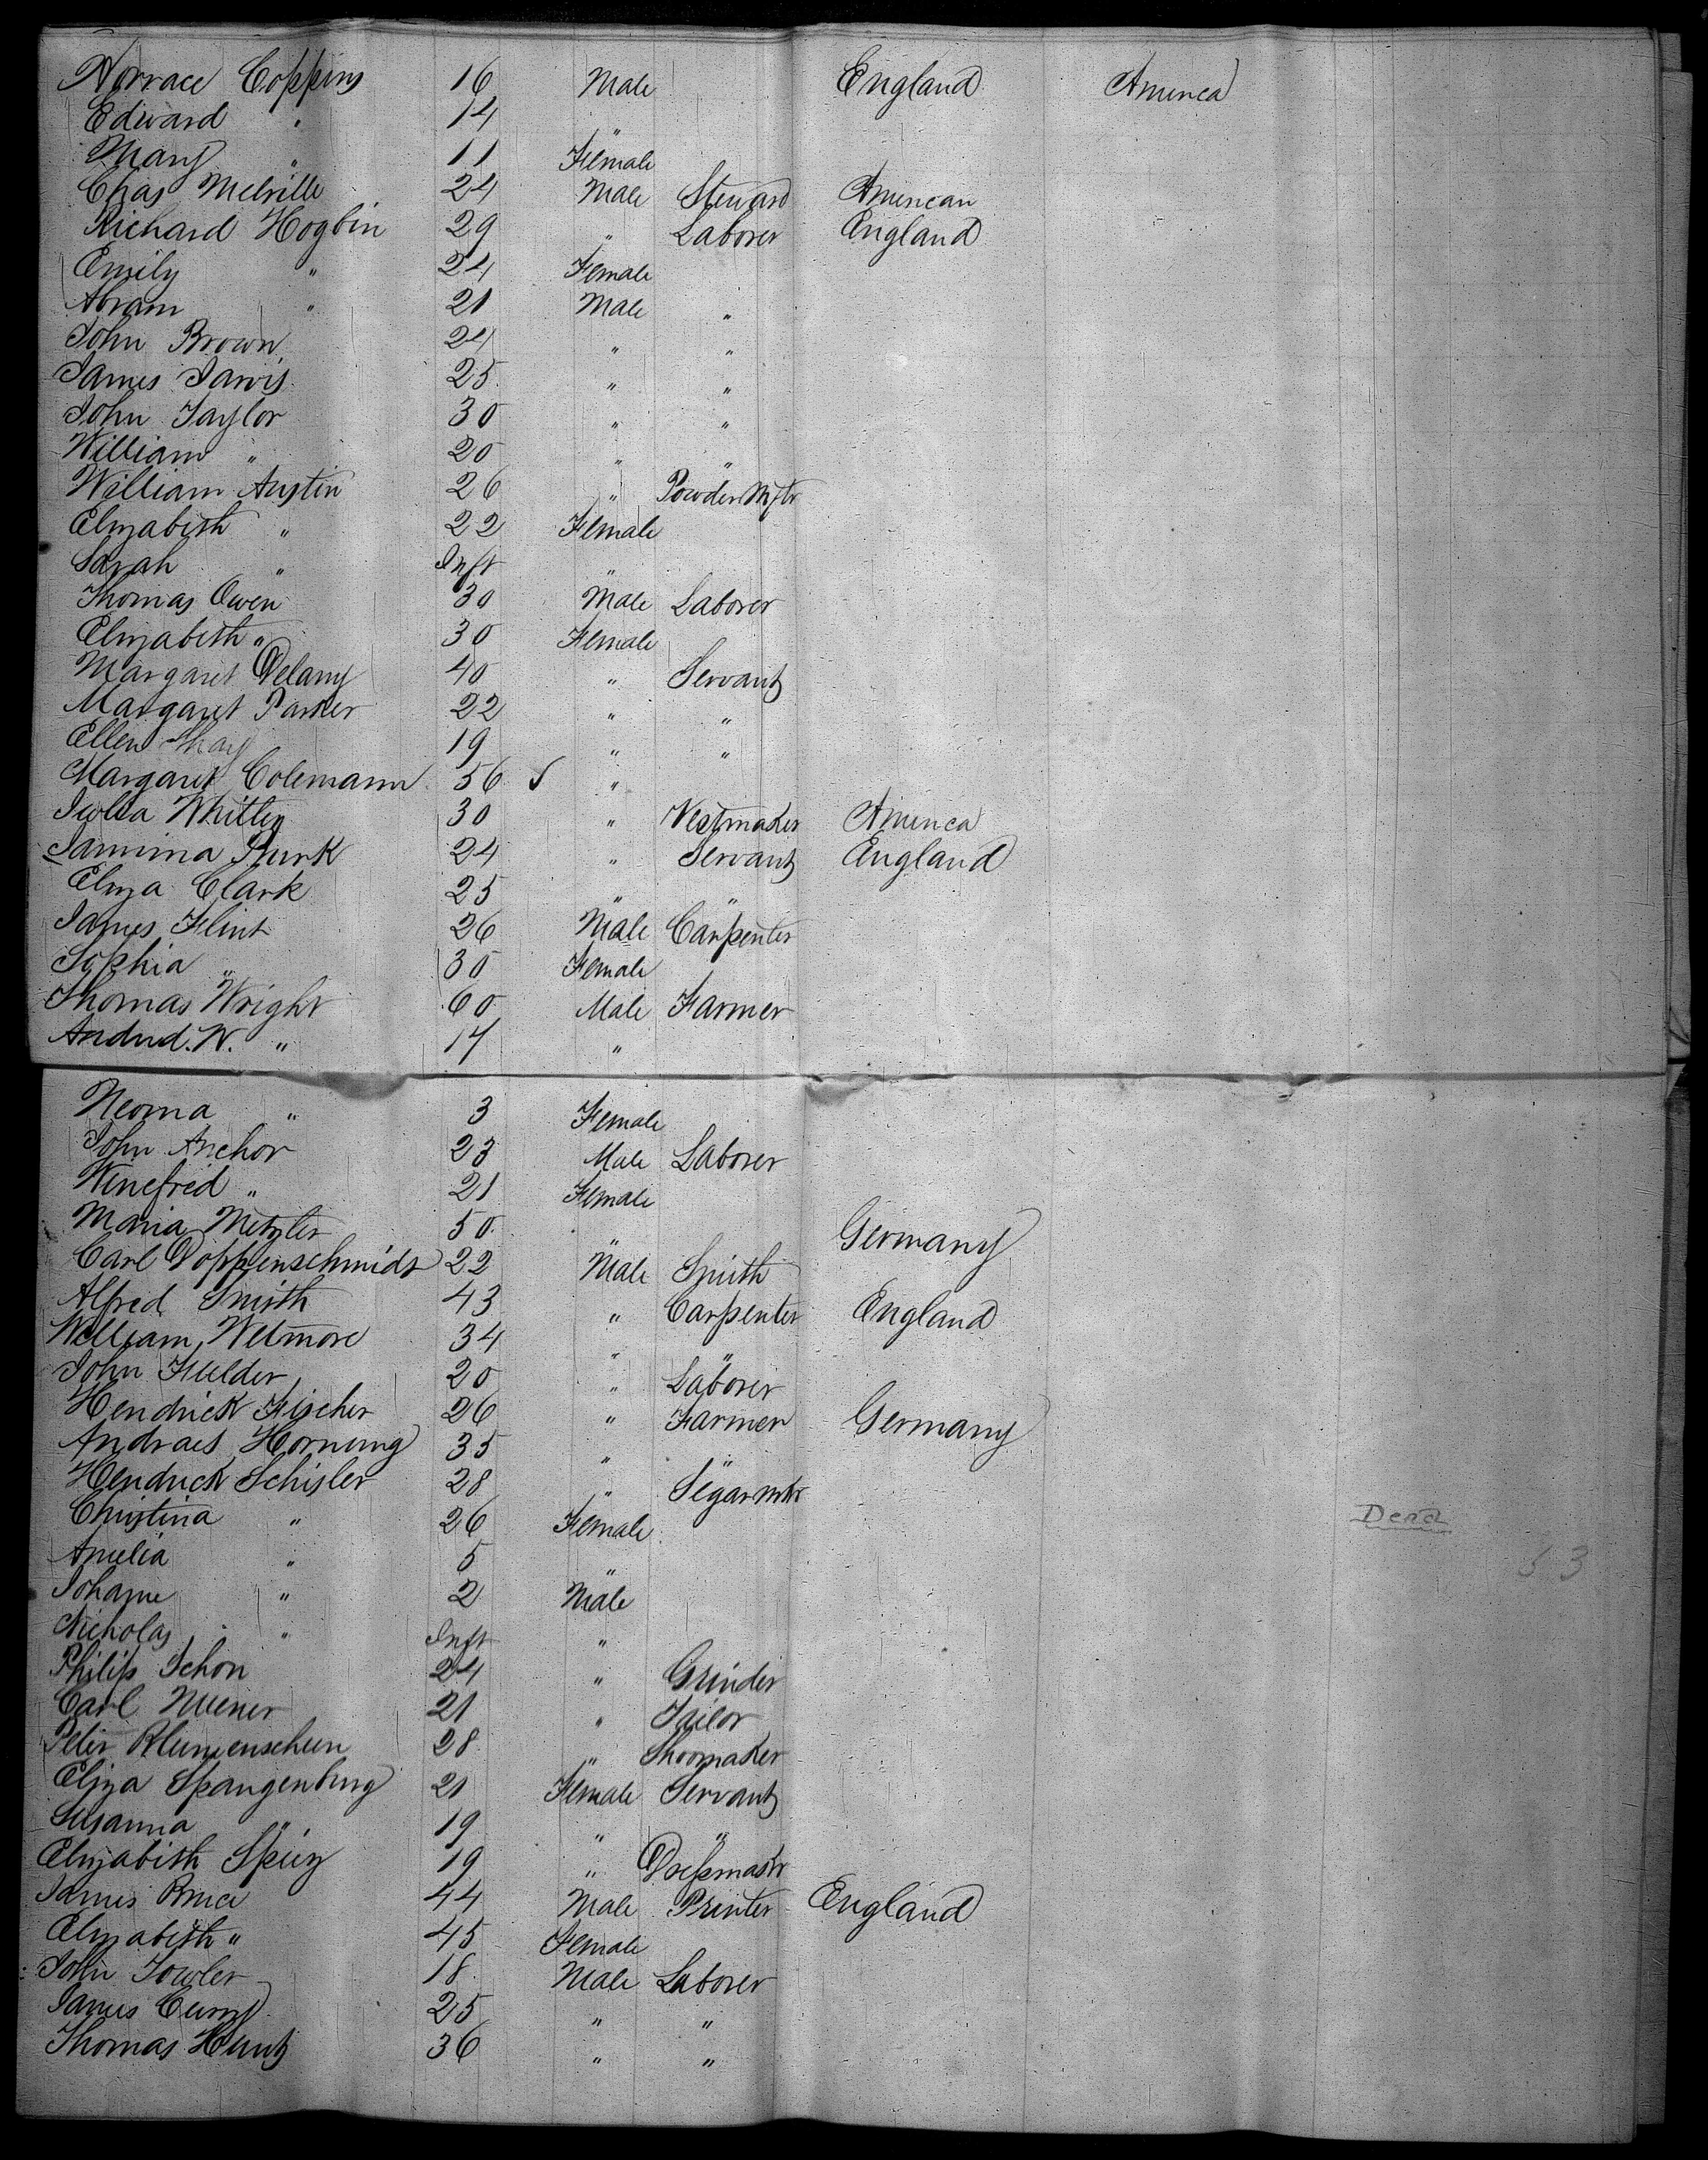 Horrace Coppins 16 Male England America
Edward " 14 "
Mary " 11 Female
Chas Melville 24 Male Steward American
Richard Hogbin 29 " Laborer England
Emily " 24 Female
Abram " 21 Male "
John Brown 24 " "
James Jarvis 25 " "
John Taylor 30 " "
William " 20 " "
William Austin 26 " Powder Mftr
Elizabeth " 22 Female
Sarah " Inft "
Thomas Owen 30 Male Laborer
Elizabeth " 30 Female
Margaret Delany 40 " Servant
Margaret Parker 22 " "
Ellen Shay 19 " "
Margaret Colemann 56 "
Julia Whitley 30 " Vestmaker America
Jamima Burk 24 " Servant England
Eliza Clark 25 " "
James Flint 26 Male Carpenter
Sophia " 30 Female
Thomas Wright 60 Male Farmer
W. " 17 "
Neoma " 3 Female
John Anchor 23 Male Laborer
Winefred " 21 Female
Maria Metzler 50 " Germany
Carl Doppenschmidt 22 Male Smith
Alfred Smith 43 " Carpenter England
William Wetmore 34 " "
John Fielder 20 " Laborer
Hendrick Fischer 26 " Farmer Germany
Andraes Hornung 35 " "
Hendrick Schisler 28 " Segar mkr
Christina " 26 Female Dead
Amelia " 5 " 53
Johanne " 2 Male
Nicholas " Inft "
Philip Schon 24 " Grinder
Carl 21 " Tailor
Peter Blumenschein 28 " Shoomaker
Eliza Spangenburg 21 Female Servant
Susanna " 19 " "
Elizabeth 19 " Dressmaskr
James Bruce 44 Male Printer England
Elizabeth " 45 Female
John Fowler 18 Male Laborer
James Curry 25 " "
Thomas Hunt 36 " "